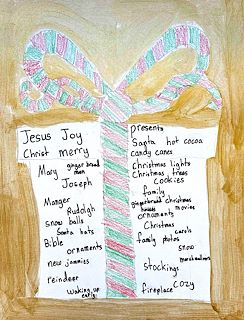 Jesus Joy
Christ merry
Mary ginger bread man
Joseph
Manger
Rudolgh
snow balls
Santa hats
Bible
ornaments
new jammies
reindeer
waking up early
presents
Santa hot cocoa
candy canes
Christmas lights
Christmas trees
cookies
family
gingerbread christmas
houses movies
ornaments
Christmas
carols
family photos
snow
marshmallows
stockings
cozy
fireplace